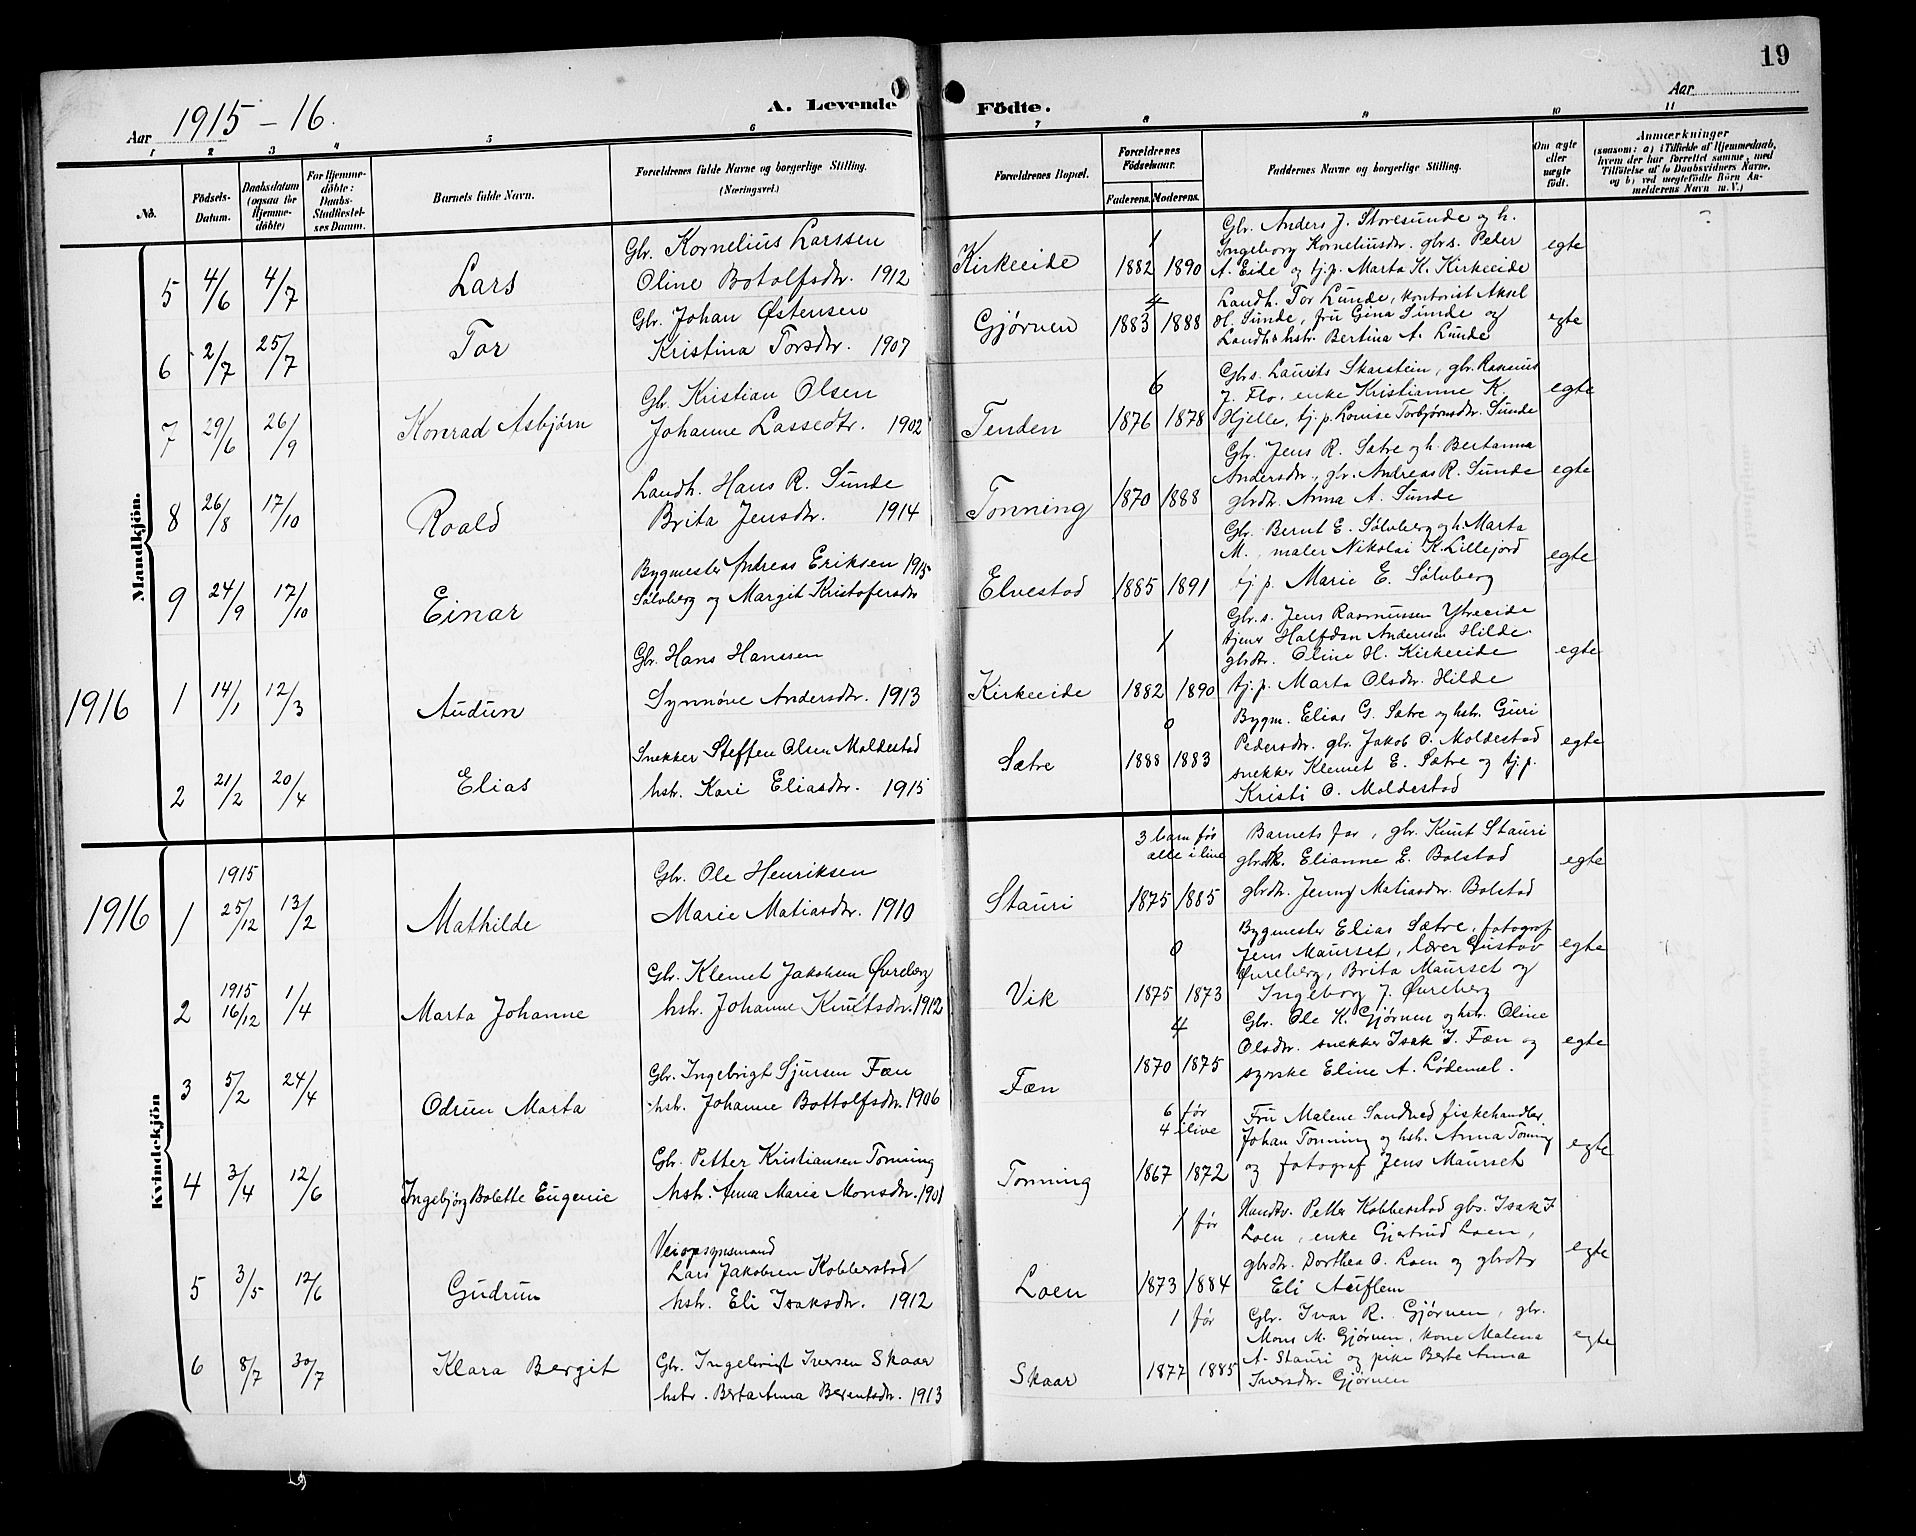 19
Aar 1915-16.
A. Levende Födte.
Aar
1 2 3 4 5 6 7 8 9 10 11
No.
Födsels-
Datum.
Daabsdatum
(ogsaa for
Hjemme-
döbte)
For Hjemme-
döbte:
Daabs-
Stadfæstel-
ses Datum.
Barnets fulde Navn.
Forældrenes fulde Navne og borgerlige Stilling.
(Næringsvei.)
Forældrenes Bopæl.
Forældrenes
Födselsaar.
Faderens. Moderens.
Faddernes Navne og borgerlige Stilling.
Om ægte
eller
uægte
födt.
Anmærkninger
(saasom: a) i Tilfælde af Hjemmedaab,
hvem der har forrettet samme, med
Tilföielse af to Daabsvidners Navne,
og b) ved uægtefödte Börn An-
melderens Navn m. V.)
Mandkjön.
5 4/6 4/7 Lars
Gbr. Kornelius Larssen
Oline Botolfsdtr. 1912
Kirkeeide
1
1882 1890
Gbr. Anders J. Storesunde og h.
Ingeborg Korneliusdr. gbrs. Peder
A. Eide og tj.p. Marta K. Kirkeeide
egte
6 2/7 25/7 Tor
Gbr. Johan Østensen
Kristina Torsdtr. 1907
Gjørven
4
1883 1888
Landh. Tor Lunde, kontorist Aksel
H. Sunde, fru Gina Sunde og
Landh.hstr. Bertina A. Lunde
egte
7 29/6 26/9 Konrad Asbjørn
Gbr. Kristian Olsen
Johanne Lassedtr. 1902
Tenden
6
1876 1878
Gbrs. Laurits Skarstein, gbr. Rasmus
J. Flo, enke Kristianne K.
Hjelle, tj.p. Lovise Torbjørnsdtr. Sunde
egte
8 26/8 17/10 Roald
Landh. Hans R. Sunde
Brita Jensdtr. 1914
Tonning
1870 1888
Gbr. Jens R. Sætre og h. Bertanna
Andersdtr., gbr. Andreas R. Sunde
gbrdtr. Anna A. Sunde
egte
9 24/9 17/10 Einar
Bygmester Andreas Eriksen 1915
Sølvberg og Margit Kristofersdtr
Elvestad
1885 1891
Gbr. Bernt E. Sølvberg og h. Marta
M., maler Nikolai K. Lillejord
tj.p. Marie E. Sølvberg
egte
1916
1 14/1 12/3 Audun
Gbr. Hans Hanssen
Synnøve Andersdtr. 1913
Kirkeeide
1
1882 1890
Gbr.s. Jens Rasmussen Ytreeide
tjener Halfdan Andersen Hilde
gbrdtr. Oline H. Kirkeeide
tj.p. Marta Olsdtr. Hilde
egte
2 21/2 20/4 Elias
Snekker Steffen Olsen Moldestad
hstr. Kari Eliasdtr. 1915
Sætre
0
1888 1883
Bygm. Elias G. Sætre og hstr. Guri
Pedersdtr. gbr. Jakob O. Moldestad
snekker Klemet E. Sætre og tj.p.
Kristi O. Moldestad
egte
Kvindekjön
1916
1 1915 25/12 13/2 Mathilde
Gbr. Ole Henriksen
Marie Matiasdtr. 1910
Stauri
3 barn før
alle i live
1875 1885
Barnets far, gbr. Knut Stauri
gbrdtr. Elianne E. Bolstad
gbrdtr. Jenny Matiasdtr. Bolstad
egte
2 1915 16/12 1/4 Marta Johanne
Gbr. Klemet Jakobsen Øvreberg
hstr. Johanne Knutsdtr. 1912
Vik
0
1875 1873
Bygmester Elias Sætre, fotograf
Jens Maurset, lærer Gustav
Øvreberg, Brita Maurset og
Ingeborg J. Øvreberg
egte
3 5/2 24/4 Odrun Marta
Gbr. Ingebrigt Sjursen Fæn
hstr. Johanne Bottolfsdtr. 1906
Fæn
4
1870 1875
Gbr. Ole K. Gjørven og hstr. Oline
Olsdtr. snekker Isak I. Fæn og
syerske Eline A. Lødemel.
egte
4 3/4 12/6 Ingebjørg Bolette Eugenie
Gbr. Petter Kristiansen Tonning
hstr. Anna Marie Monsdtr. 1901
Tonning
6 før
4 ilive
1867 1872
Fru Malene Sandved fiskehandler
Johan Tonning og hstr. Anna Tonning
og fotograf Jens Maurset
egte
5 3/5 12/6 Gudrun
Veiopsynsmand
Lars Jakobsen Kobberstad
hstr. Eli Isaksdtr. 1912
Loen
1 før
1873 1884
Handv. Petter Kobberstad gbs. Isak I.
Loen, enke Gjertrud Loen,
gbrdtr. Dorthea O. Loen og gbrdtr
Eli Auflem
egte
6 8/7 30/7 Klara Bergit
Gbr. Ingebrigt Iversen Skaar
hstr. Berta Anna Berentsdtr. 1913
Skaar
1 før
1877 1885
Gbr. Ivar R. Gjørven, gbr.
Mons M. Gjørven, kone Malena
A. Stauri og pike Berte Anna
Iversdtr. Gjørven
egte